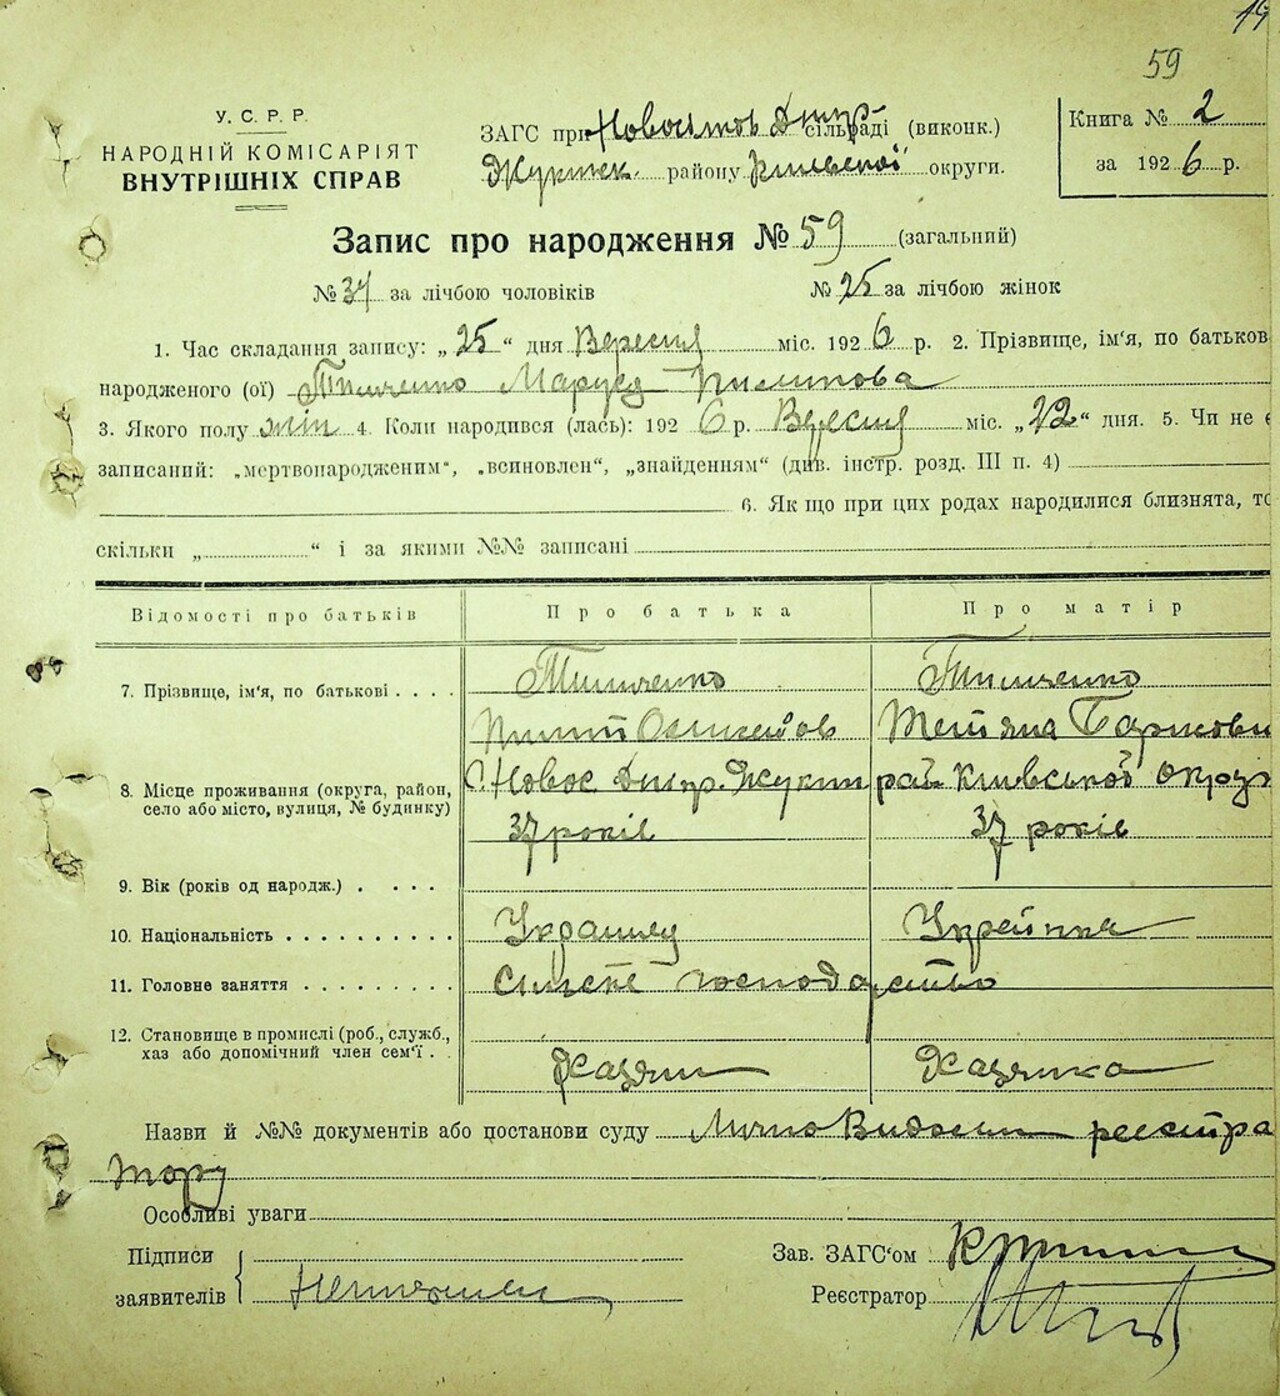 59
У. С. Р. Р.
НАРОДНІЙ КОМІСАРІЯТ
ВНУТРІШНІХ СПРАВ
ЗАГС при сільраді (виконк.)
району Київської округи.
Книга № 2
за 1926 р.
Запис про народження № 59 (загальний)
№ 34 за лічбою чоловіків
№ 25 за лічбою жінок
1. Час складання запису: „25“ дня Вересня міс. 1926 р. 2. Прізвище, ім'я, по батьков
народженого (ої) Тимченко Маруся Пилипова
3. Якого полу жін 4. Коли народився (лась): 1926 р. Вересня міс. „22“ дня. 5. Чи не є
записаний: „мертвонародженим“, „всиновлен“, „знайденням“ (див. інстр. розд. III п. 4)
6. Як що при цих родах народилися близнята, то
скільки „ “ і за якими №№ записані
Відомості про батьків Про батька Про матір
7. Прізвище, ім'я, по батькові . . . . Тимченко Тимченко
Тетяна
8. Місце проживання (округа, район, С. Новос. Дніпр. рай Київської Округи
село або місто, вулиця, № будинку) 37 років 37 років
9. Вік (років од народж.) . . . .
10. Національність . . . . . . . . . . Українец Українка
11. Головне заняття . . . . . . . . . Сільске господарство
12. Становище в промислі (роб., служб.,
хаз або допомічний член сем'ї . . Хазяин Хазяйка
Назви й №№ документів або постанови суду реєстра
тору
Особливі уваги
Підписи
заявителів
Зав. ЗАГС'ом
Реєстратор